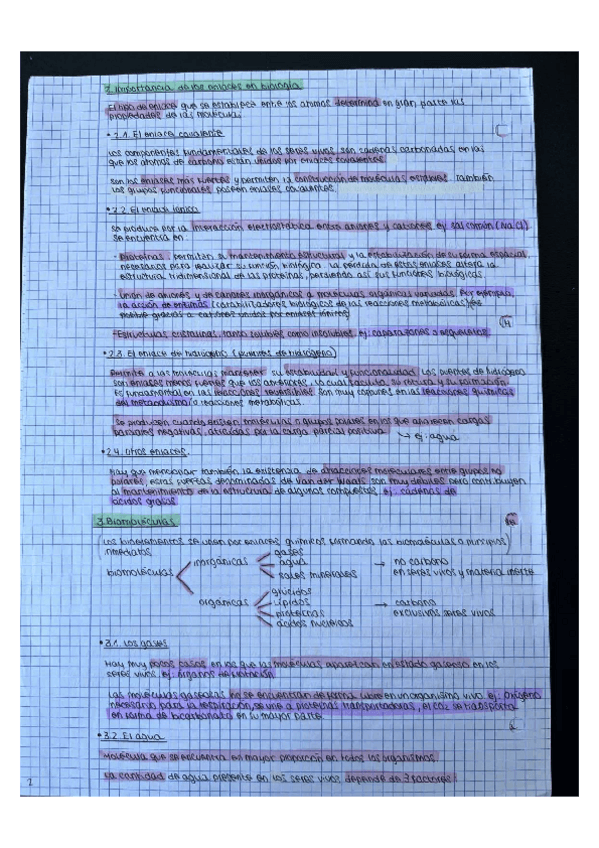 2. Importancia de los enlaces en biología
El tipo de enlace que se establece entre los átomos determina en gran parte las
propiedades de las moléculas.
• 2.1. El enlace covalente
Los componentes fundamentales de los seres vivos son cadenas carbonadas en las
que los átomos de carbono están unidos por enlaces covalentes.
Son los enlaces más fuertes y permiten la construcción de moléculas estables. También
los grupos funcionales poseen enlaces covalentes.
• 2.2. El enlace iónico
Se produce por la interacción electrostática entre aniones y cationes ej: sal común (NaCl)
Se encuentra en:
- Proteínas: permiten su mantenimiento estructural y la estabilización de su forma espacial,
necesarias para realizar su función biológica. La pérdida de estos enlaces altera la
estructura tridimensional de las proteínas, perdiendo así sus funciones biológicas.
- Unión de aniones y de cationes inorgánicos a moléculas orgánicas variadas. Por ejemplo,
la acción de enzimas (catalizadores biológicos de las reacciones metabólicas)
gracias a cationes unidos por enlaces iónicos
- Estructuras cristalinas, tanto solubles como insolubles ej: caparazones o esqueletos
• 2.3. El enlace de hidrógeno (puentes de hidrógeno)
Permite a las moléculas mantener su estabilidad y funcionalidad. Los puentes de hidrógeno
son enlaces menos fuertes que los anteriores, lo cual facilita su rotura y su formación.
Es fundamental en las reacciones reversibles. Son muy comunes en las reacciones químicas
del metabolismo o reacciones metabólicas.
Se producen cuando existen moléculas o grupos polares en los que aparecen cargas
parciales negativas, atraídas por la carga parcial positiva.
→ ej: agua
• 2.4. Otros enlaces.
Hay que mencionar también la existencia de atracciones moleculares entre grupos no
polares, estas fuerzas denominadas de Van der Waals son muy débiles pero contribuyen
al mantenimiento de la estructura de algunos compuestos ej: cadenas de
ácidos grasos
3. Biomoléculas
(Los bioelementos se unen por enlaces químicos formando las biomoléculas o principios)
inmediatos
biomoléculas
inorgánicas
gases
agua
sales minerales
→ no carbono
en seres vivos y materia inerte
orgánicas
glúcidos
lípidos
proteínas
ácidos nucleicos
→ carbono
exclusivas seres vivos
• 3.1. Los gases
Hay muy pocos casos en los que las moléculas aparezcan en estado gaseoso en los
seres vivos ej: órganos de flotación
Las moléculas gaseosas no se encuentran de forma libre en un organismo vivo. ej: oxígeno
necesario para la respiración se une a proteínas transportadoras, el CO2 se transporta
en forma de bicarbonato en su mayor parte.
• 3.2. El agua
Molécula que se encuentra en mayor proporción en todos los organismos.
La cantidad de agua presente en los seres vivos depende de 3 factores:
2